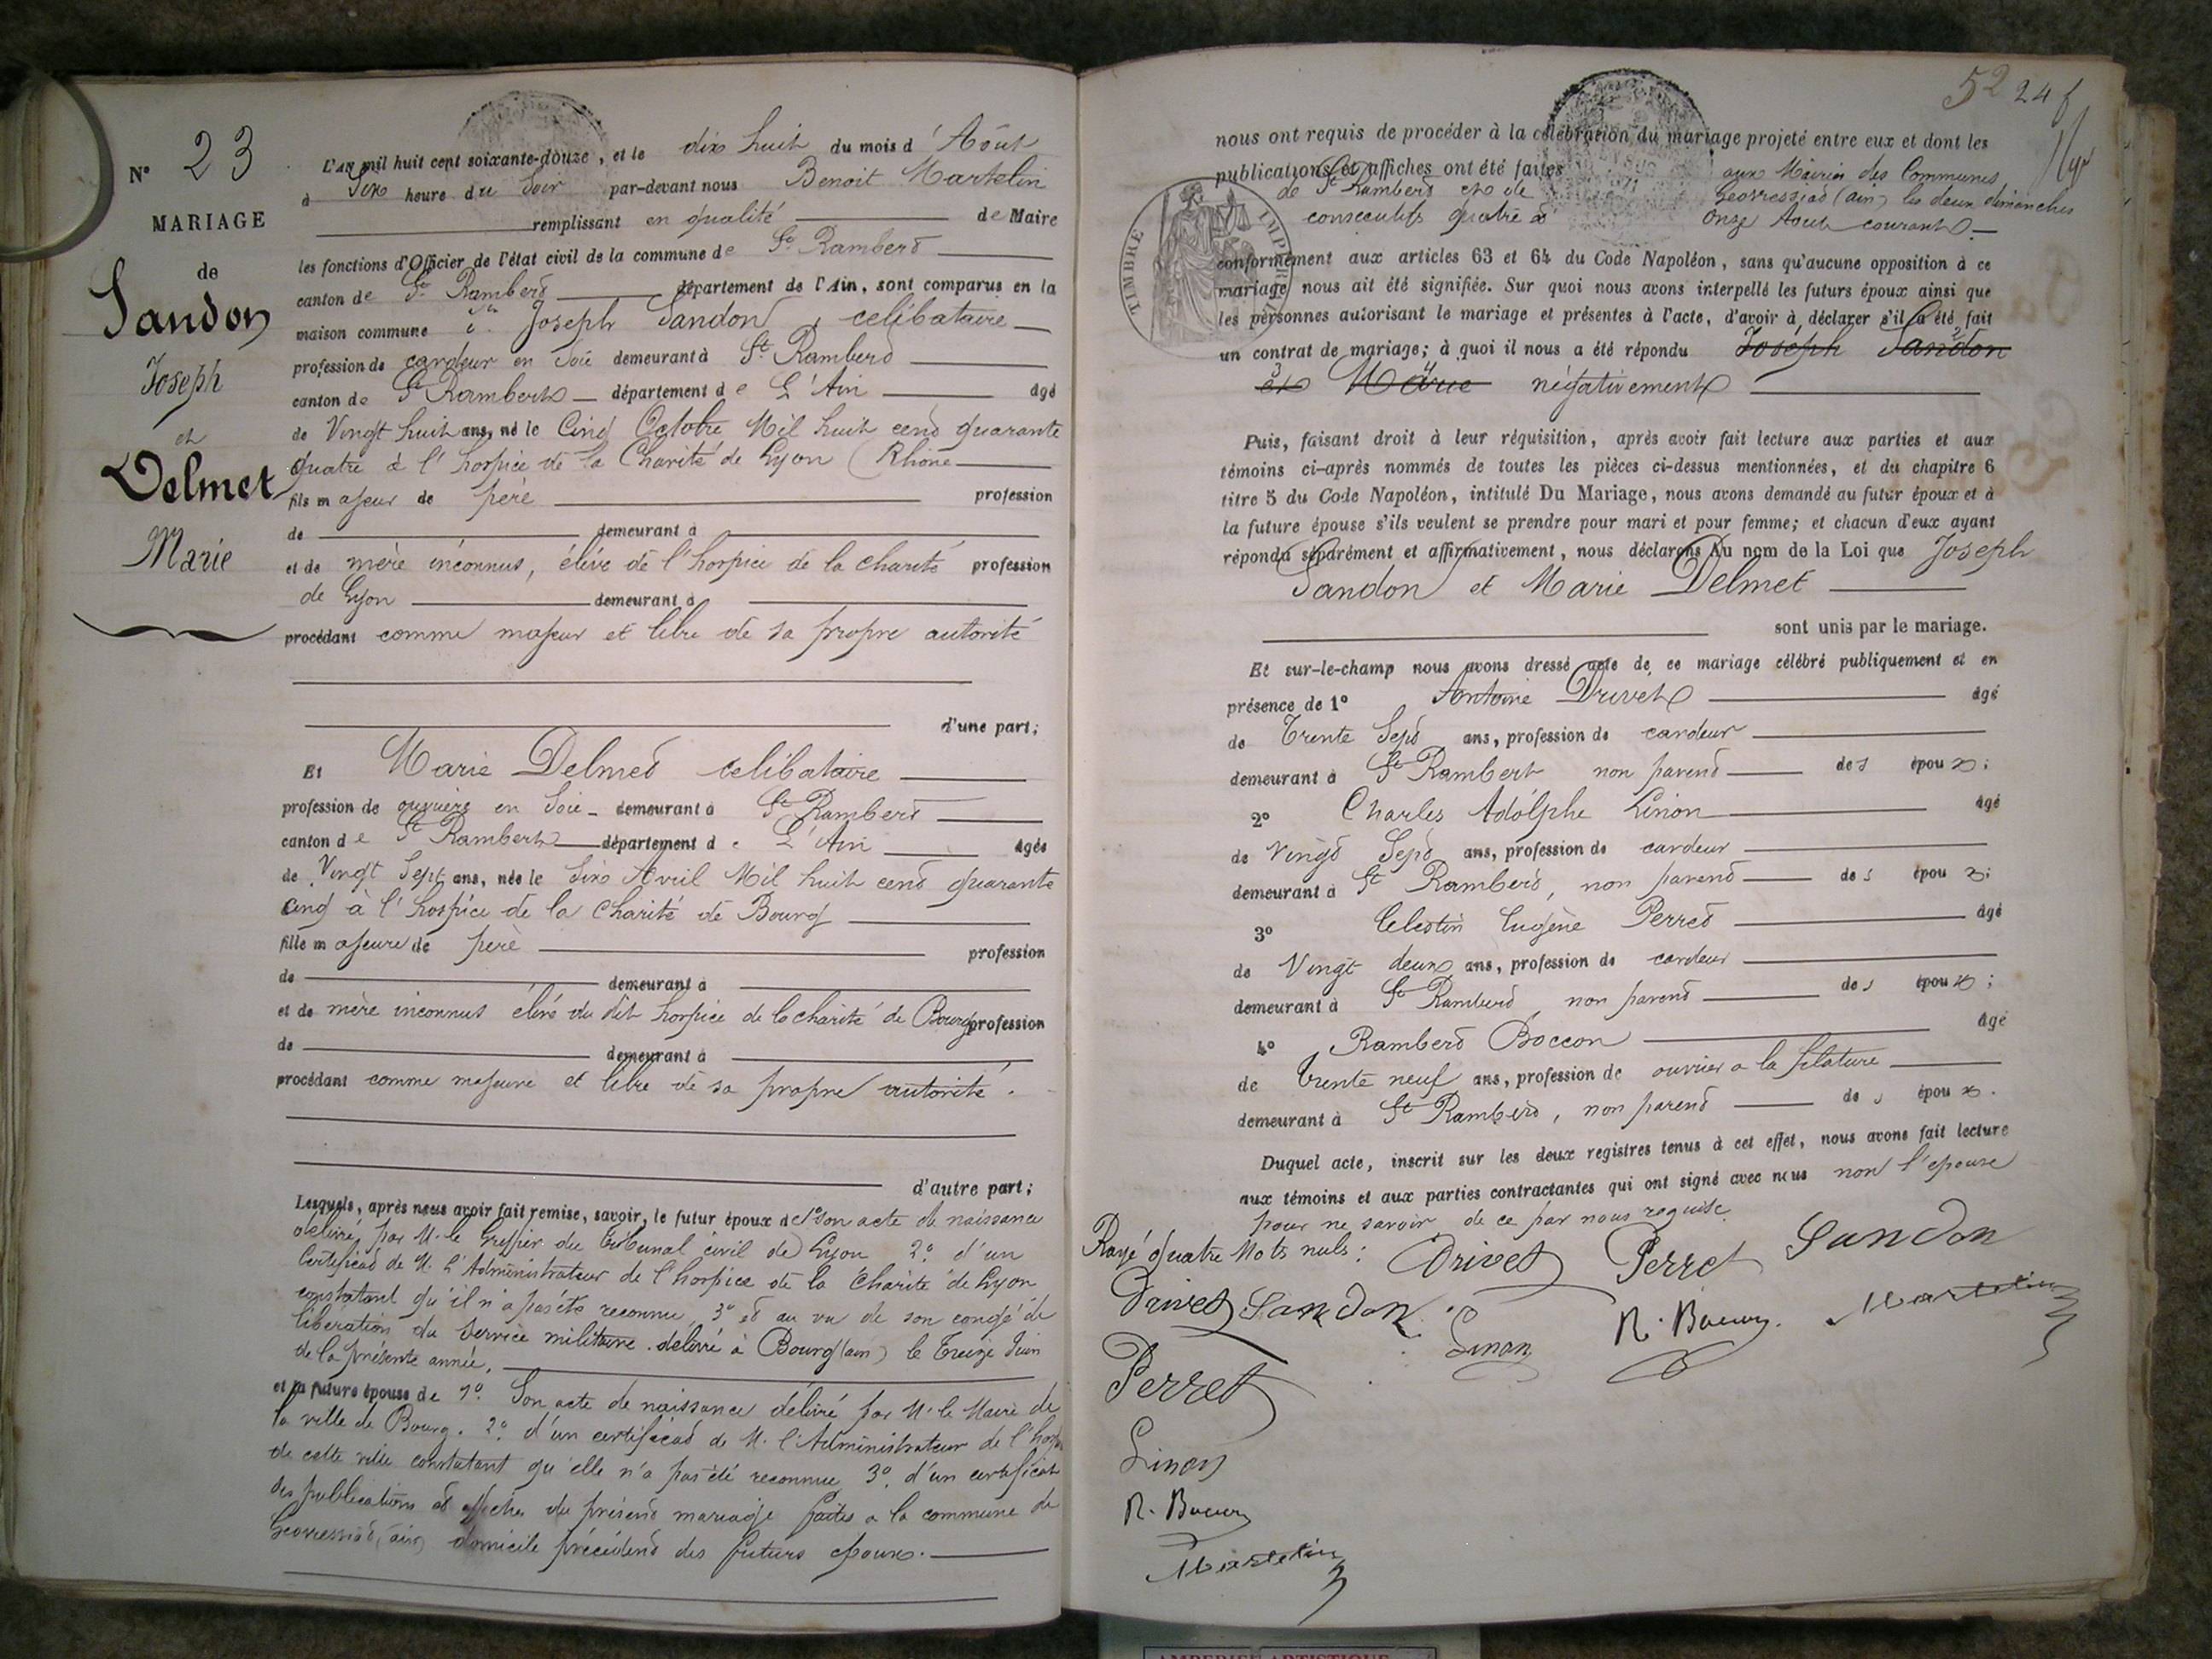 N° 23
MARIAGE
de
Sandon
Joseph
et
Delmet
Marie
L'AN mil huit cent soixante-douze, et le dix huit du mois d'Août
à Six heure du Soir par-devant nous Benoit Martelin
remplissant en qualité de Maire
les fonctions d'Officier de l'état civil de la commune de St Rambert
canton de St Rambert département de l'Ain, sont comparus en la
maison commune Joseph Sandon, celibataire
profession de cardeur en Soie demeurant à St Rambert
canton de St Rambert département de L'Ain âgé
de Vingt huit ans, né le Cinq Octobre Mil huit cent quarante
quatre à l'hospice de la Charité de Lyon (Rhône
fils majeur de père profession
de demeurant à
et de mère inconnus, élève de l'hospice de la charité profession
de Lyon demeurant à
procédant comme majeur et libre de sa propre autorité
d'une part;
Et Marie Delmet celibataire
profession de ouvrière en Soie demeurant à St Rambert
canton de St Rambert département de L'Ain âgée
de Vingt Sept ans, née le Six Avril Mil huit cent quarante
cinq à l'hospice de la Charité de Bourg
fille majeure de père profession
de demeurant à
et de mère inconnus élève du dit hospice de la charité de Bourg profession
de demeurant à
procédant comme majeure et libre de sa propre autorité.
d'autre part;
Lesquels, après nous avoir fait remise, savoir, le futur époux de 1° son acte de naissance
délivré par M. le Greffier du tribunal civil de Lyon 2° d'un
Certificat de M. l'Administrateur de l'hospice de la Charité de Lyon
constatant qu'il n'a pas été reconnu, 3° et au vu de son congé de
libération du Service militaire délivré à Bourg (ain) le Treize Juin
de la présente année.
et la future épouse de 1° Son acte de naissance délivré par M. le Maire de
la ville de Bourg. 2° d'un certificat de M. l'Administrateur de l'hosp
de cette ville constatant qu'elle n'a pas été reconnue 3° d'un certificat
des publications et affiches du présent mariage faites a la commune de
Geovressiat (ain) domicile précédent des futurs époux.
52 24 f
nous ont requis de procéder à la célébration du mariage projeté entre eux et dont les
publications et affiches ont été faites aux Mairies des Communes
de St Rambert et de Geovressiat (ain) les deux dimanches
consecutifs quatre et onze Aout courant.
TIMBRE IMPERIAL
conformément aux articles 63 et 64 du Code Napoléon, sans qu'aucune opposition à ce
mariage nous ait été signifiée. Sur quoi nous avons interpellé les futurs époux ainsi que
les personnes autorisant le mariage et présentes à l'acte, d'avoir à déclarer s'il a été fait
un contrat de mariage; à quoi il nous a été répondu Joseph Sandon
et Marie négativement
Puis, faisant droit à leur réquisition, après avoir fait lecture aux parties et aux
témoins ci-après nommés de toutes les pièces ci-dessus mentionnées, et du chapitre 6
titre 5 du Code Napoléon, intitulé Du Mariage, nous avons demandé au futur époux et à
la future épouse s'ils veulent se prendre pour mari et pour femme; et chacun d'eux ayant
répondu séparément et affirmativement, nous déclarons Au nom de la Loi que Joseph
Sandon et Marie Delmet
sont unis par le mariage.
Et sur-le-champ nous avons dressé acte de ce mariage célébré publiquement et en
présence de 1° Antoine Drivet âgé
de Trente Sept ans, profession de cardeur
demeurant à St Rambert non parent des époux;
2° Charles Adolphe Linon âgé
de Vingt Sept ans, profession de cardeur
demeurant à St Rambert, non parent des époux;
3° Celestin Eugène Perret âgé
de Vingt deux ans, profession de cardeur
demeurant à St Rambert non parent des époux;
4° Rambert Boccon âgé
de Trente neuf ans, profession de ouvrier a la filature
demeurant à St Rambert, non parent des époux.
Duquel acte, inscrit sur les deux registres tenus à cet effet, nous avons fait lecture
aux témoins et aux parties contractantes qui ont signé avec nous non l'epouse
pour ne savoir de ce par nous requise
Rayé quatre Mots nuls: Drivet Perret Sandon
Drivet Sandon Linon R. Boccon Martelin
Perret
Linon
R. Boccon
Martelin
AMBERIEU ARTISTIQUE